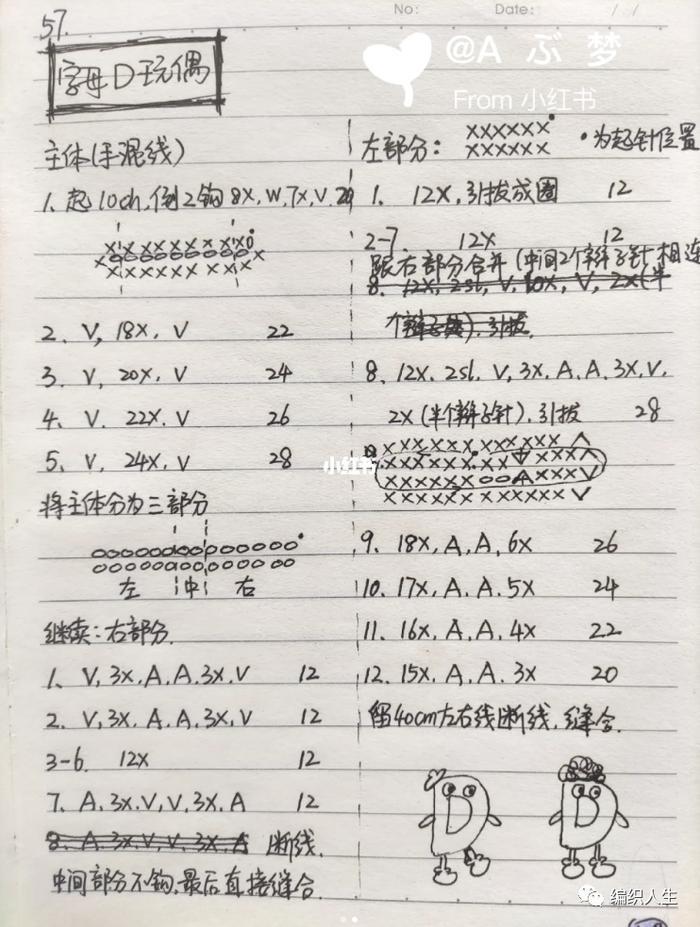 No:
Date:
57.
@A ぶ 梦
From 小红书
字母D玩偶
主体(手混线)
1. 起10ch,倒2钩8X,W,7X,V. 20
2. V, 18X, V 22
3. V, 20X, V 24
4. V. 22X. V 26
5. V, 24X, V 28
将主体分为三部分
左 中 右
继续:右部分.
1. V, 3X, A, A, 3X, V 12
2. V, 3X, A, A, 3X, V 12
3-6. 12X 12
7. A, 3X, V, V, 3X, A 12
8. A. 3X. V, V. 3X. A 断线.
中间部分不钩,最后直接缝合.
左部分: XXXXXX •为起针位置
XXXXXX
1. 12X, 引拔成圈 12
2-7. 12X 12
跟右部分合并(中间2个辫子针相连
8. 12X, 2sl, V, 10X, V, 2X(半
个辫子针), 引拔
8. 12X. 2sl. V, 3X. A. A. 3X, V.
2X(半个辫子针). 引拔 28
小红书
9. 18X, A, A, 6X 26
10. 17X, A, A. 5X 24
11. 16X, A, A. 4X 22
12. 15X, A, A. 3X 20
留40cm左右线断线,缝合.
D D
编织人生